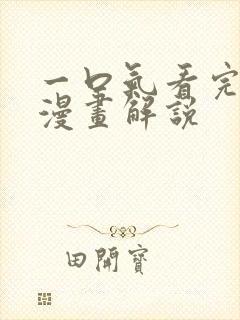 一口氣看完
漫畫解説
田開寶